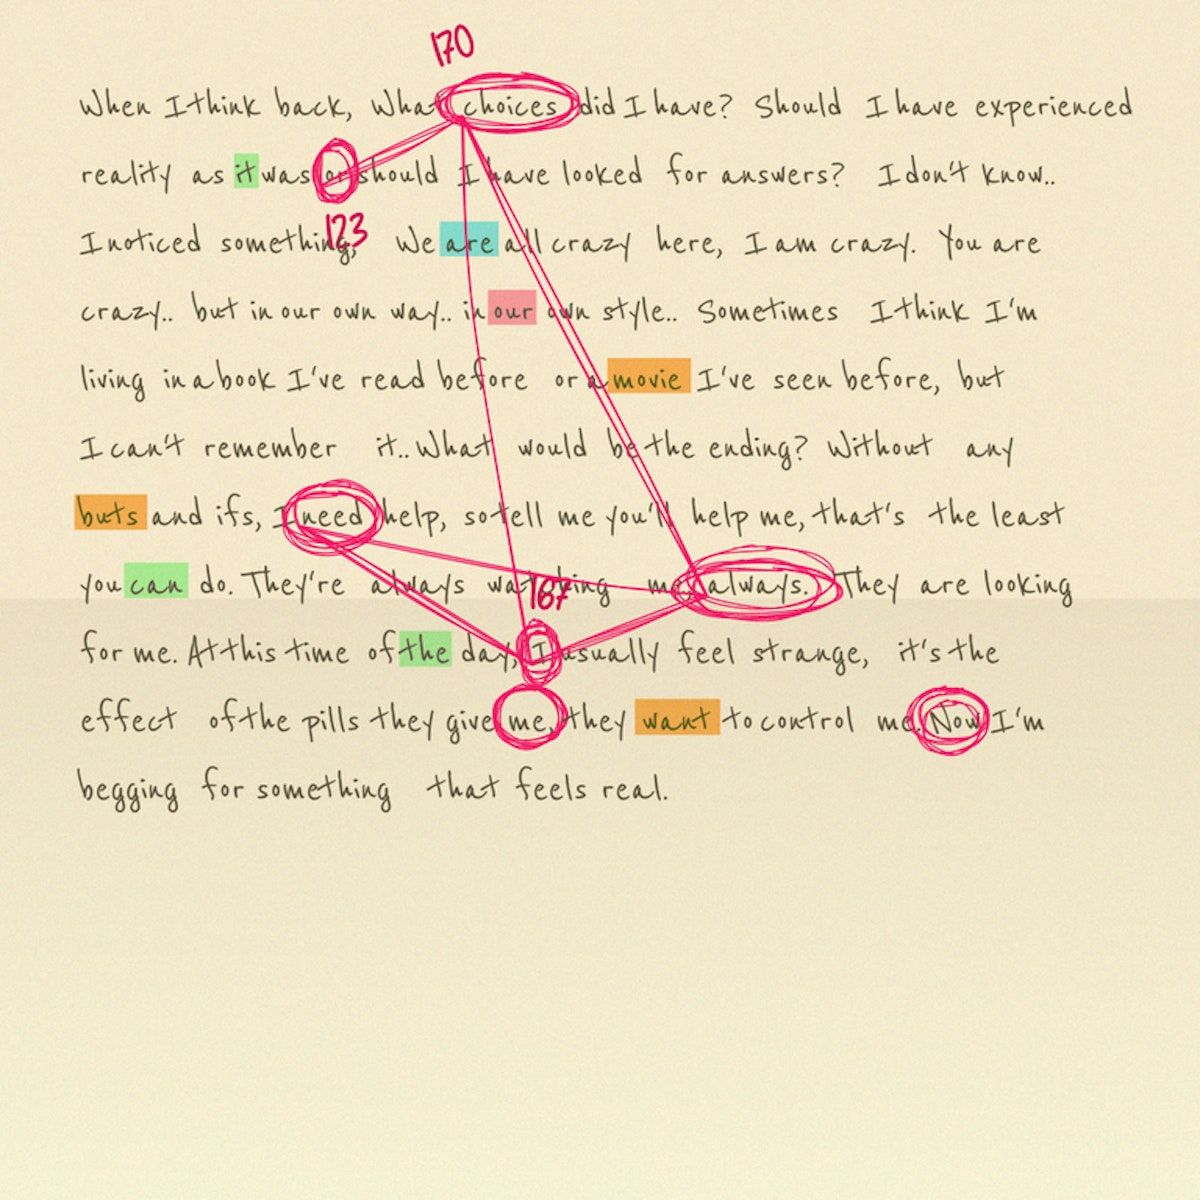 170
When I think back, What choices did I have? Should I have experienced
reality as it was or should I have looked for answers? I don't know..
123
I noticed something, We are all crazy here, I am crazy. You are
crazy.. but in our own way.. in our own style.. Sometimes I think I'm
living in a book I've read before or a movie I've seen before, but
I can't remember it.. What would be the ending? Without any
buts and ifs, I need help, so tell me you'll help me, that's the least
you can do. They're always watching me, always. They are looking
167
for me. At this time of the day, I usually feel strange, it's the
effect of the pills they give me, they want to control me. Now I'm
begging for something that feels real.